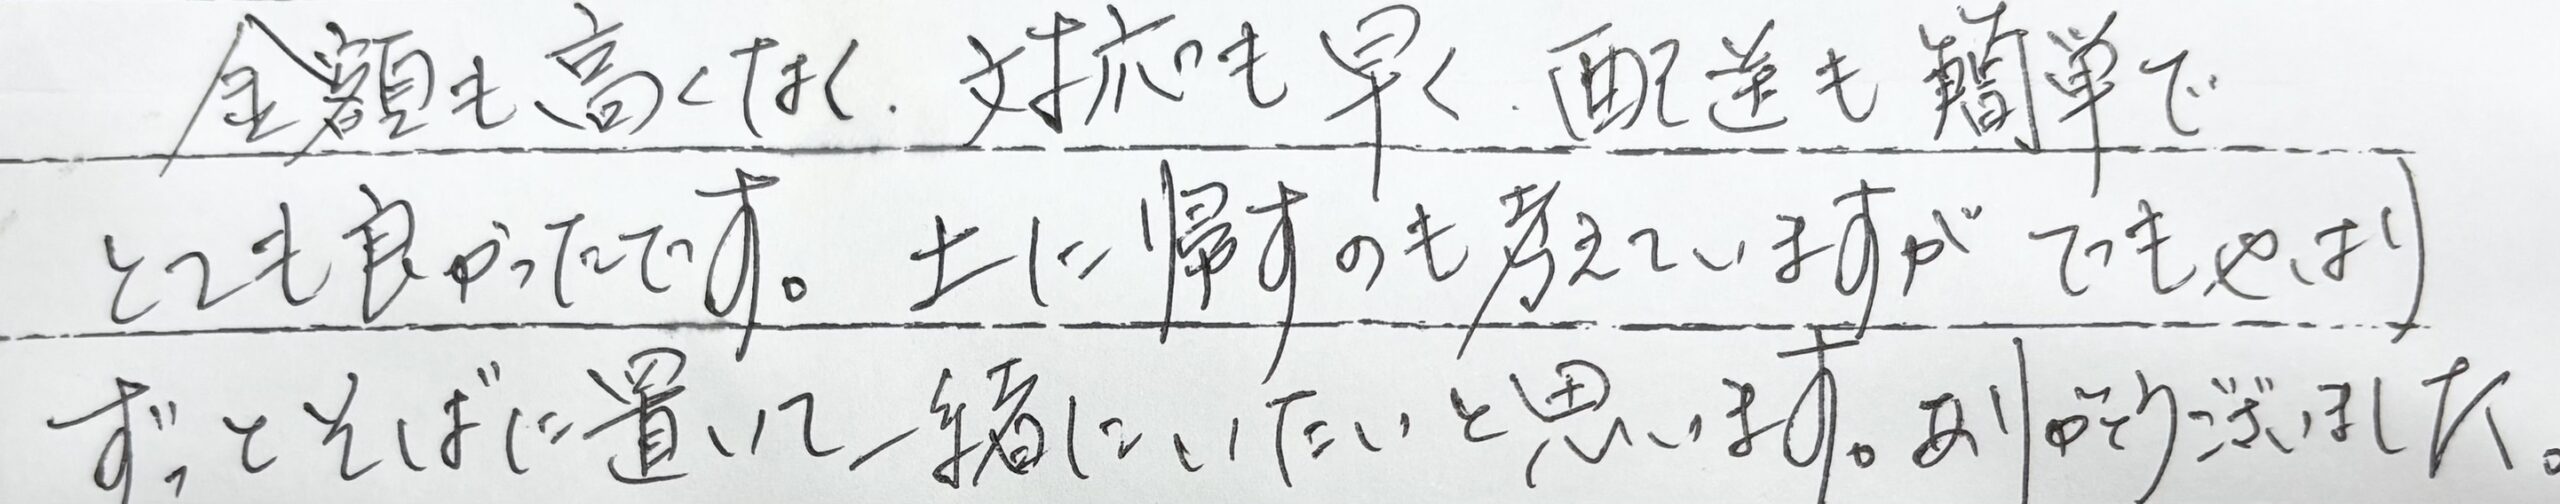 金額も高くなく.対応も早く.配送も簡単で
とても良かったです。土に帰すのも考えていますがでもやはり
ずっとそばに置いて一緒にいたいと思います。ありがとうございました。